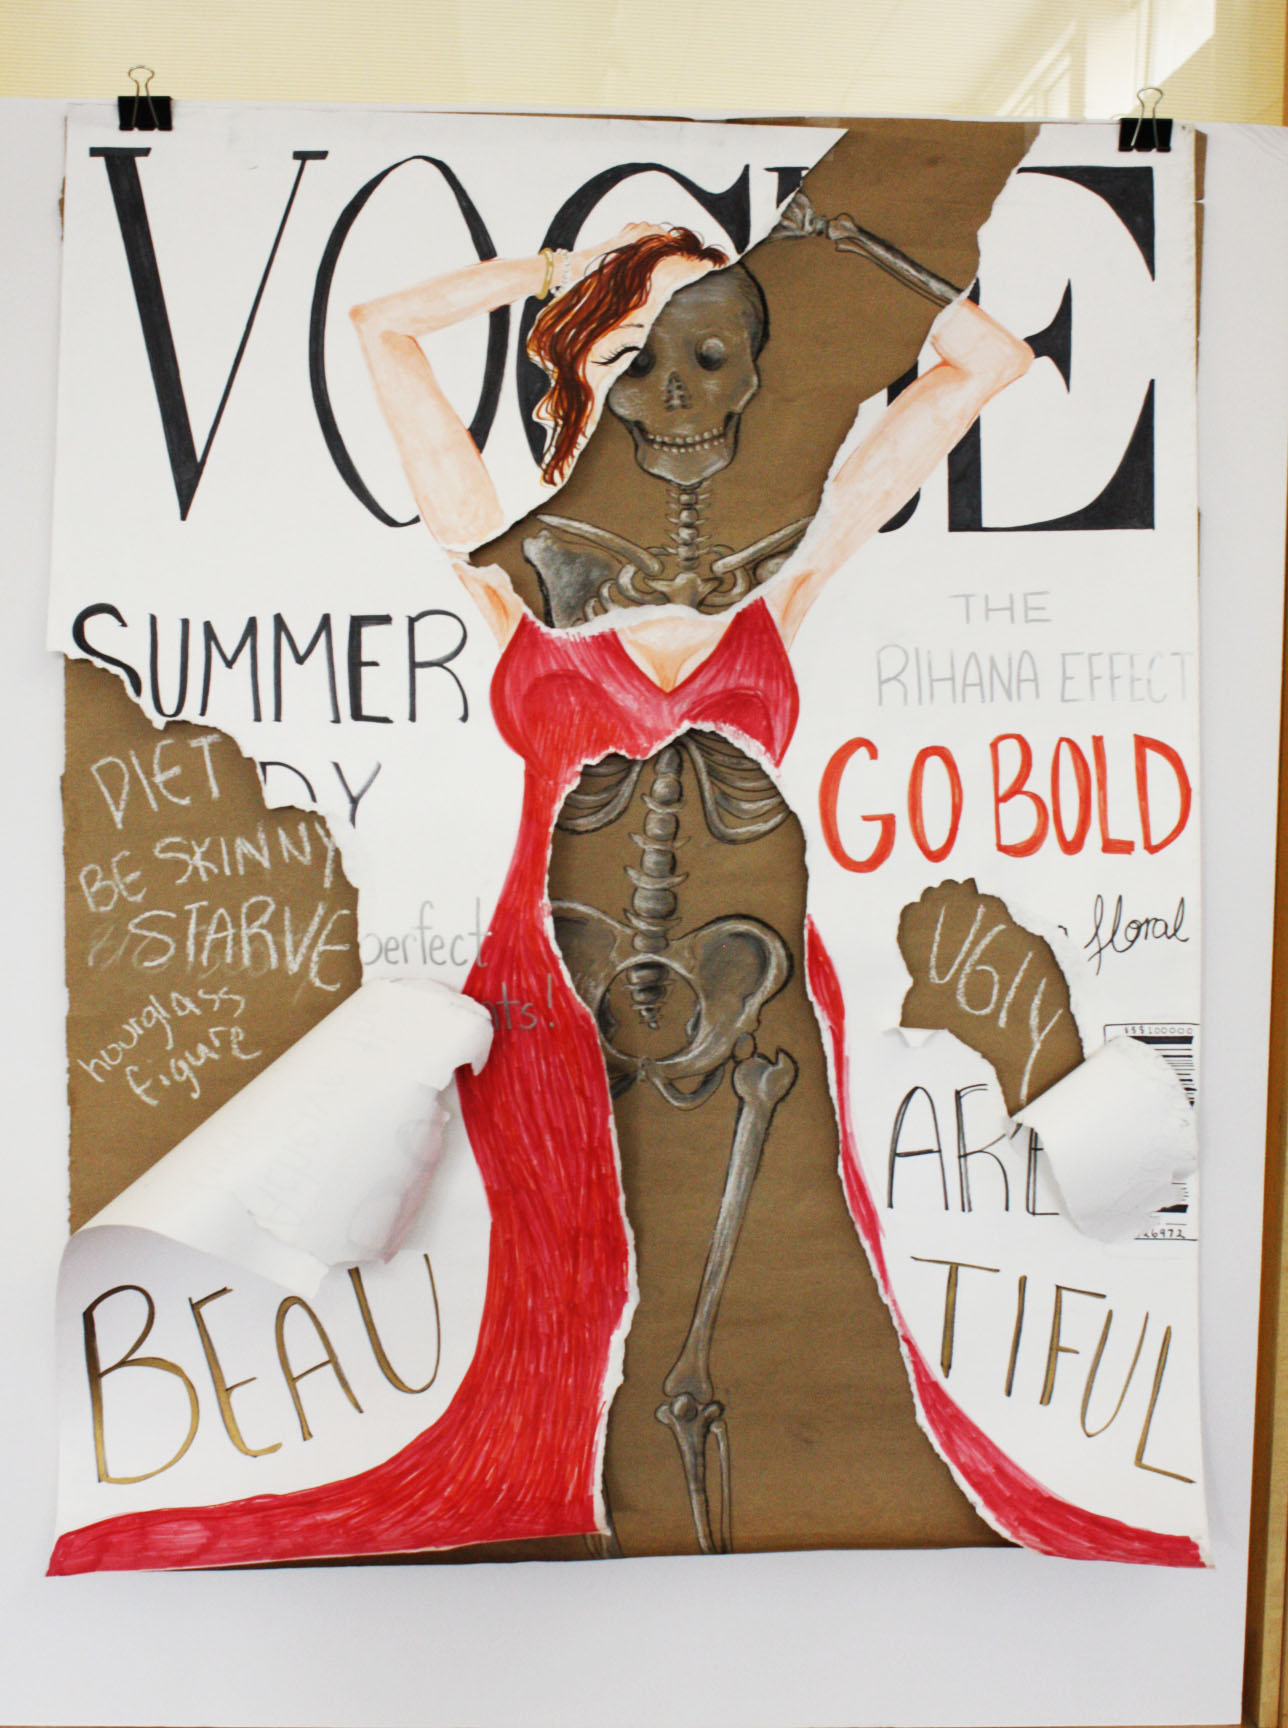 VOGUE
SUMMER
DY
DIET
BE SKINNY
STARVE
hourglass
figure
perfect
nts!
THE
RIHANA EFFECT
GO BOLD
floral
UGLY
$$$100000
ARE
26972
BEAU
TIFUL